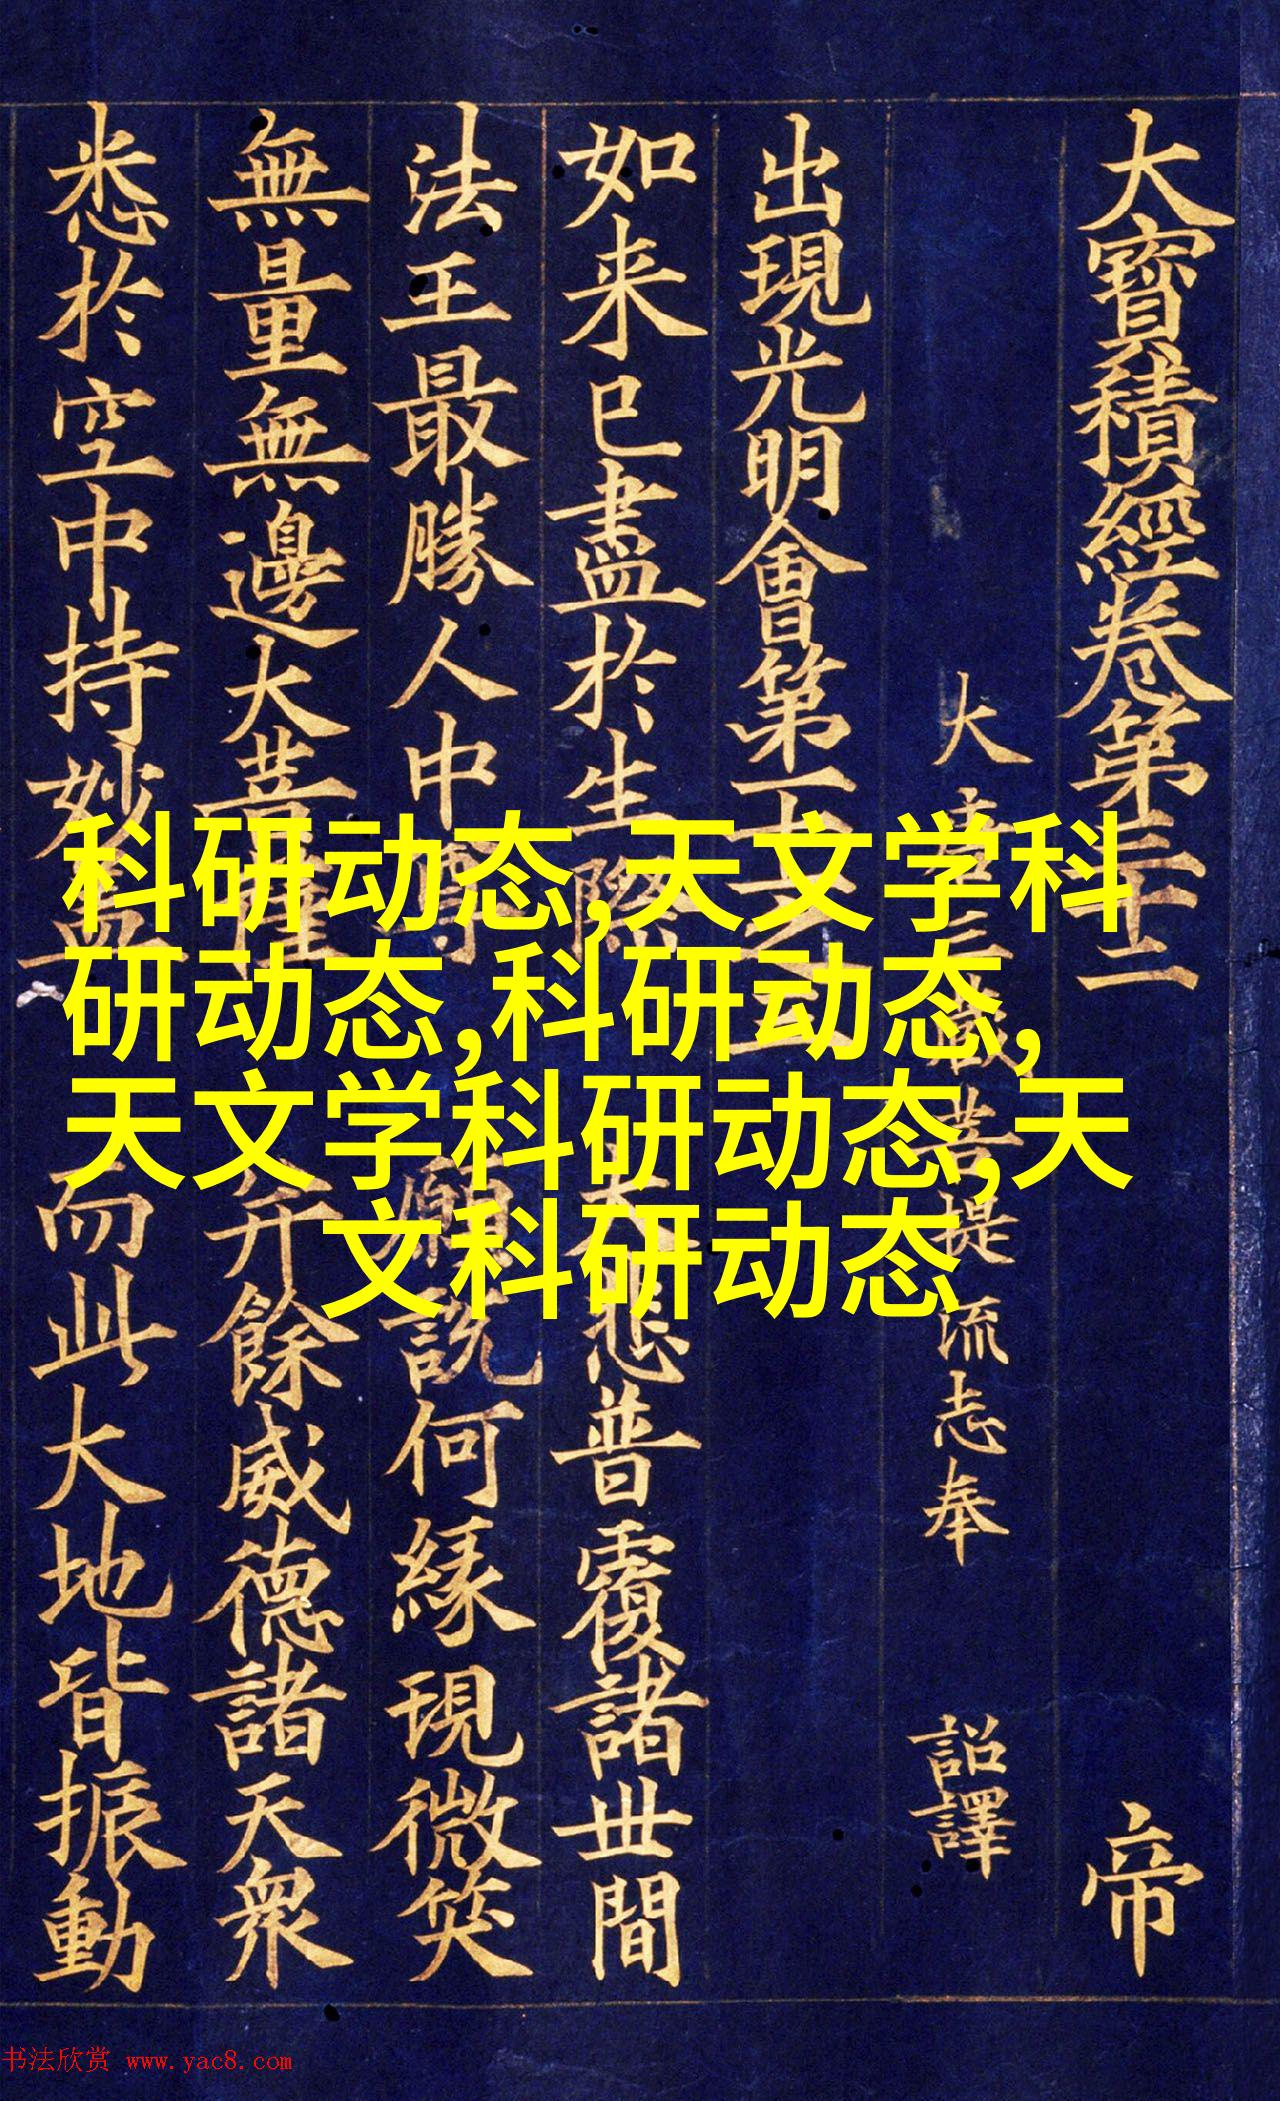 大寶積經卷第三十二 帝
大唐三藏菩提流志奉 詔譯
出現光明會第十一之三
如来已盡於生際 大悲普覆諸世間
法王最勝人中尊 願說何緣現微笑
無量無邊大菩薩 并餘威德諸天衆
悉於空中持妙盖 而此大地皆振動
科研动态,天文学科
研动态,科研动态,
天文学科研动态,天
文科研动态
书法欣赏 www.yac8.com